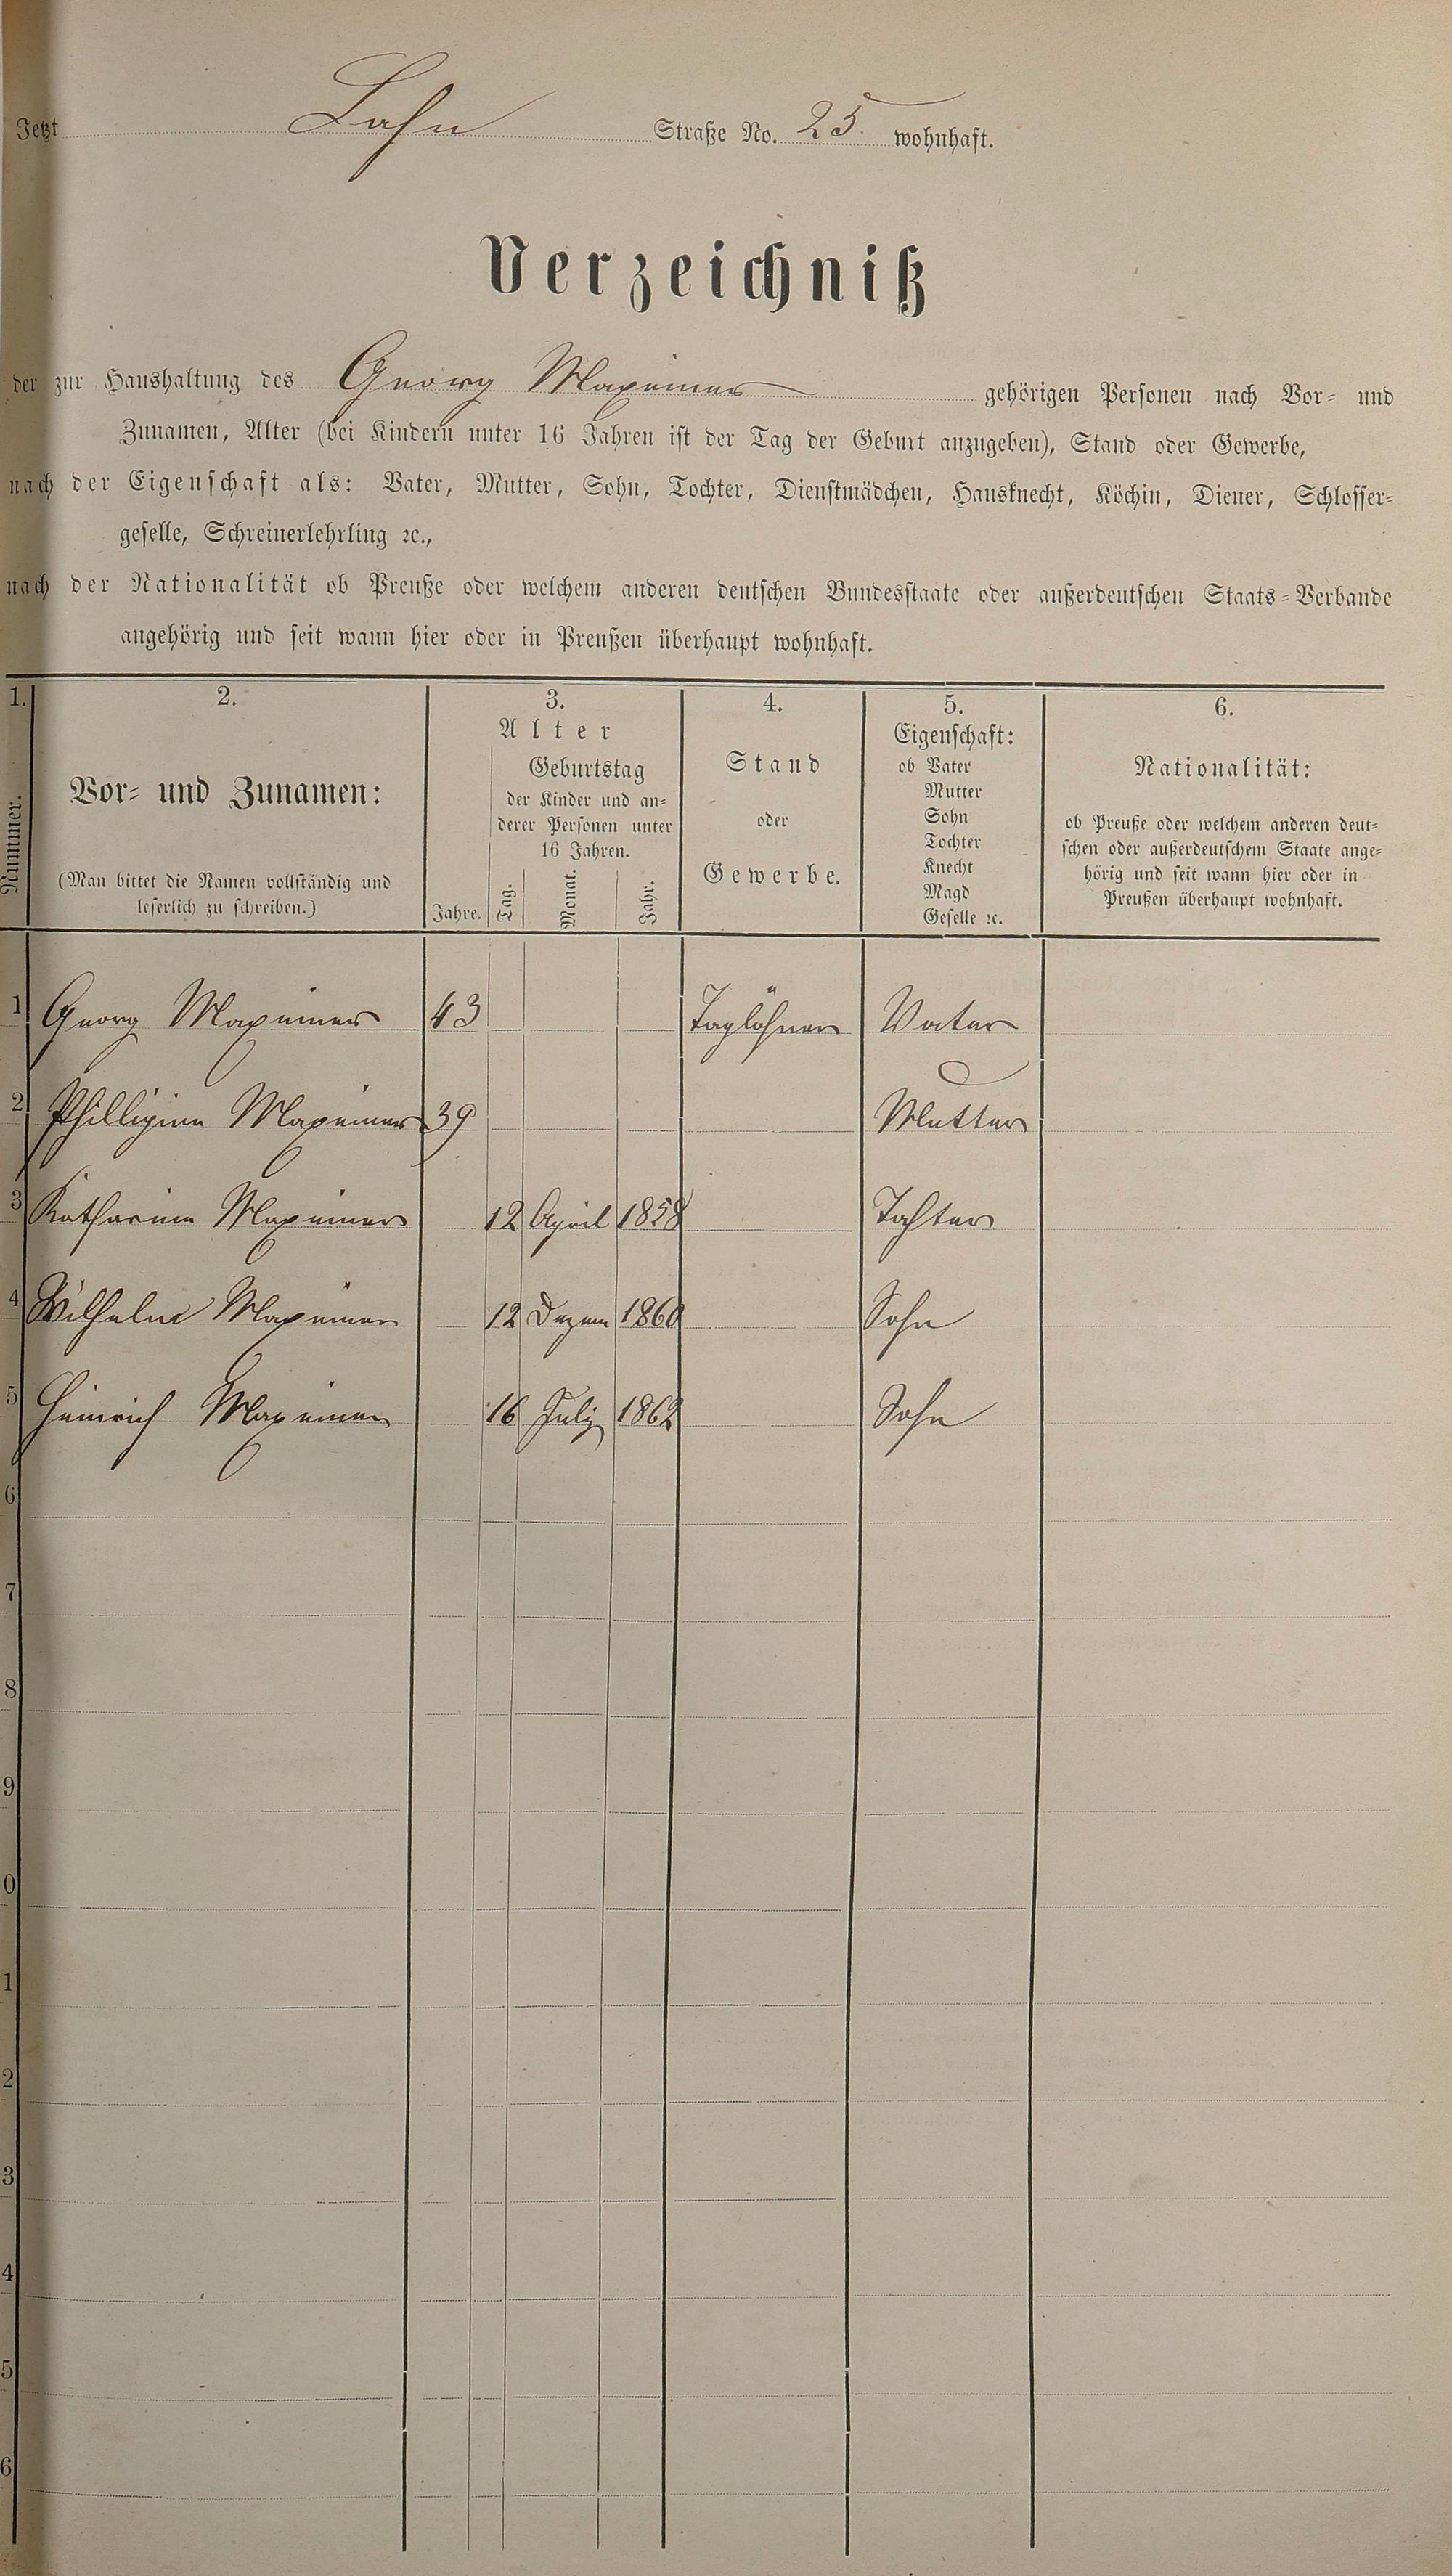 Jetzt Lahn Straße No. 25. wohnhaft.
Verzeichniß
der zur Haushaltung des Georg Maxeiner gehörigen Personen nach Vor- und
Zunamen, Alter (bei Kindern unter 16 Jahren ist der Tag der Geburt anzugeben), Stand oder Gewerbe,
nach der Eigenschaft als: Vater, Mutter, Sohn, Tochter, Dienstmädchen, Hausknecht, Köchin, Diener, Schlosser-
geselle, Schreinerlehrling ꝛc.,
nach der Nationalität ob Preuße oder welchem anderen deutschen Bundesstaate oder außerdeutschen Staats-Verbande
angehörig und seit wann hier oder in Preußen überhaupt wohnhaft.
1.
Nummer.
2.
Vor- und Zunamen:
(Man bittet die Namen vollständig und
leserlich zu schreiben.)
3.
Alter
Geburtstag
der Kinder und an-
derer Personen unter
16 Jahren.
Jahre. Tag. Monat. Jahr.
4.
Stand
oder
Gewerbe.
5.
Eigenschaft:
ob Vater
Mutter
Sohn
Tochter
Knecht
Magd
Geselle ꝛc.
6.
Nationalität:
ob Preuße oder welchem anderen deut-
schen oder außerdeutschem Staate ange-
hörig und seit wann hier oder in
Preußen überhaupt wohnhaft.
1 Georg Maxeiner 43 Taglöhner Vater
2 Phillipine Maxeiner 39 Mutter
3 Katharine Maxeiner 12 April 1858 Tochter
4 Wilhelm Maxeiner 12 Dezem 1860 Sohn
5 Heinrich Maxeiner 16 July 1862 Sohn
6
7
8
9
0
1
2
3
4
5
6